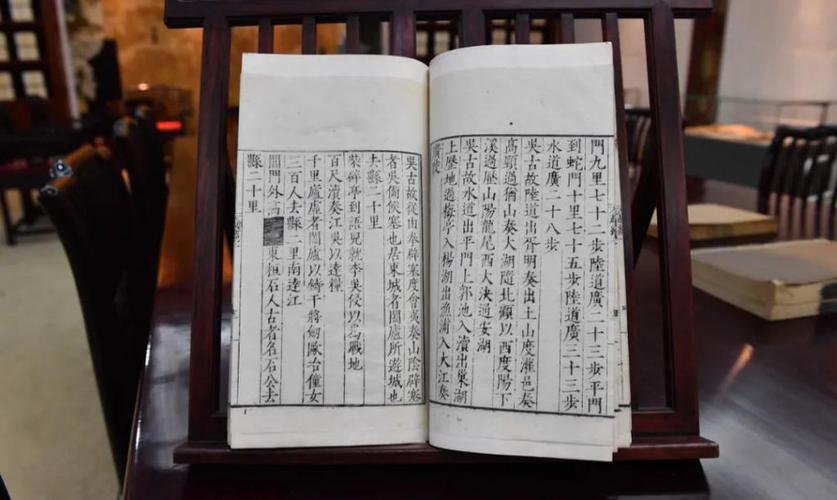 門九里七十二步陸道廣二十三步平門
到蛇門十里七十五步陸道廣三十三步
水道廣二十八步
吳古故陸道出胥明奏出土山度灌邑奏
高頸過猶山奏太湖隨北顧以西度陽下
溪過歷山陽龍尾西大決通安湖
吳古故水道出平門上郭池入瀆出巢湖
上歷地過梅亭入楊湖出漁浦入大江奏
廣陵
吳古故從由拳辟塞度會夷奏山陰辟塞
者吳備候塞也居東城者闔廬所遊城也
去縣二十里
柴辟亭到語兒就李吳侵以為戰地
百尺瀆奏江吳以達糧
千里廬虛者闔廬以鑄干將劒歐冶僮女
三百人去縣二里南達江
閶門外高東桓石人古者名石公去
縣二十里